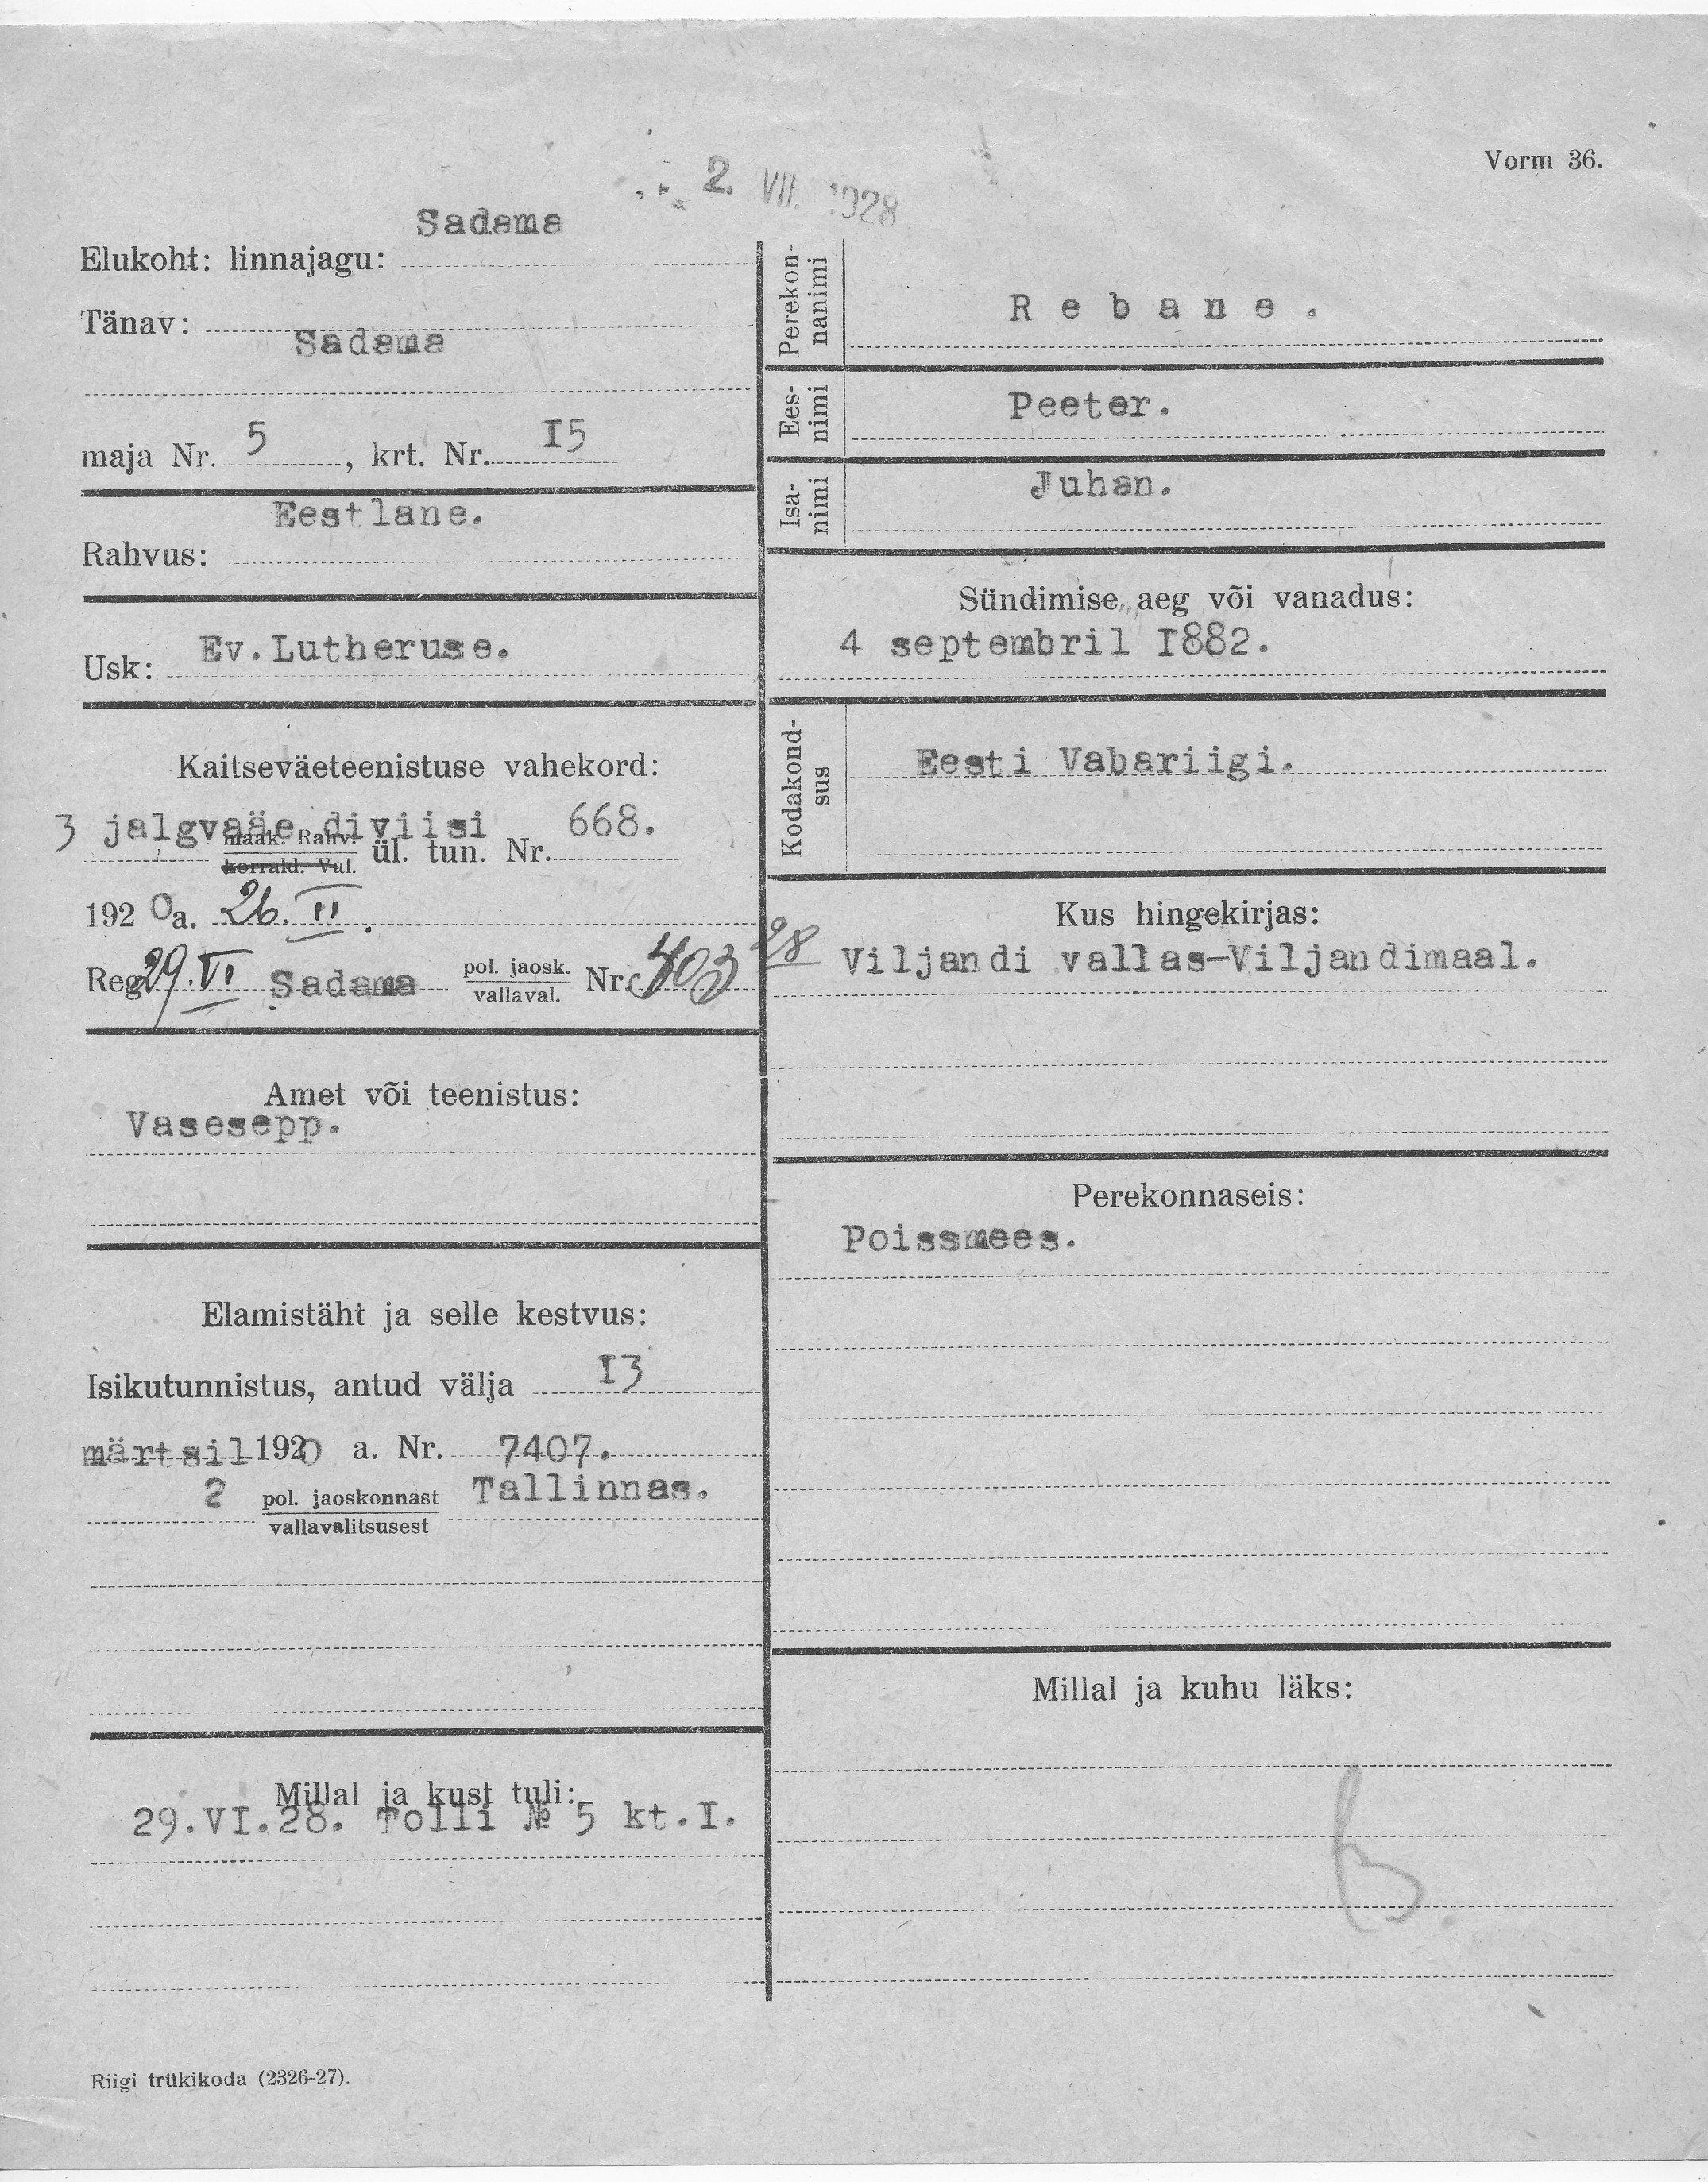 Vorm 36.
2. VII. 1928
Sadama
Elukoht: linnajagu:
Tänav:
Sadama
maja Nr. 5, krt. Nr. I5
Eestlane.
Rahvus:
Usk: Ev.Lutheruse.
Kaitseväeteenistuse vahekord:
3 jalgvaäe diviisi
maak. Rahv.
korrald. Val.
ül. tun. Nr. 668.
1920a. 26. II.
Reg. 29. VI Sadama pol. jaosk. Nr. 403
28
vallaval.
Amet või teenistus:
Vasesepp.
Elamistäht ja selle kestvus:
Isikutunnistus, antud välja I3
märtsil 1920 a. Nr. 7407.
2 pol. jaoskonnast Tallinnas.
vallavalitsusest
Millal ja kust tuli:
29.VI.28. Tolli № 5 kt.I.
Riigi trükikoda (2326-27).
Perekon-
nanimi
Rebane.
Ees-
nimi
Peeter.
Isa-
nimi
Juhan.
Sündimise aeg või vanadus:
4 septembril I882.
Kodakond-
sus
Eesti Vabariigi.
Kus hingekirjas:
Viljandi vallas-Viljandimaal.
Perekonnaseis:
Poissmees.
Millal ja kuhu läks: